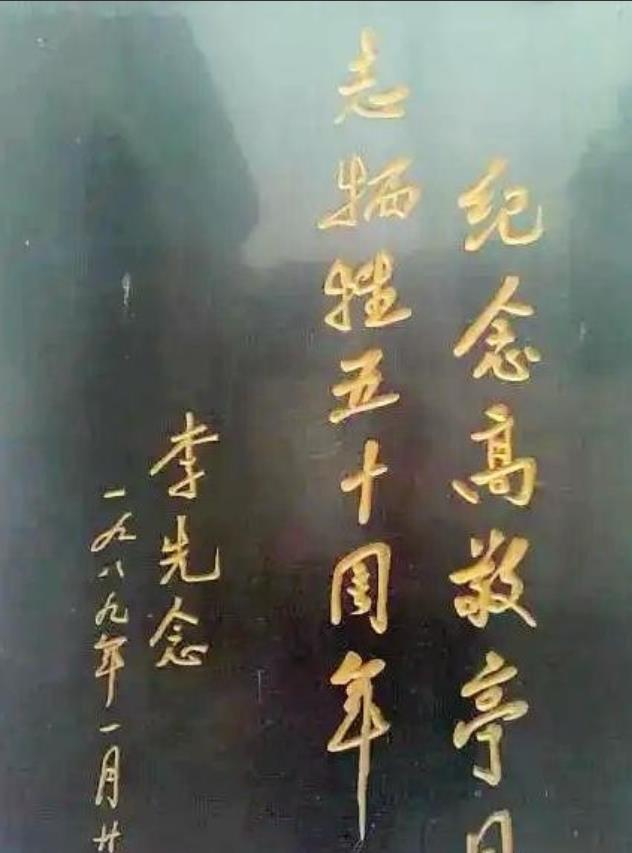 纪念高敬亭同
志牺牲五十周年
李先念
一九八九年一月廿